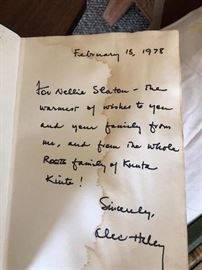 February 15, 1978
For Nellie Slaton - the
warmest of wishes to you
and your family from
me, and from the whole
Roots family of Kunta
Kinte!
Sincerely,
Alex Haley